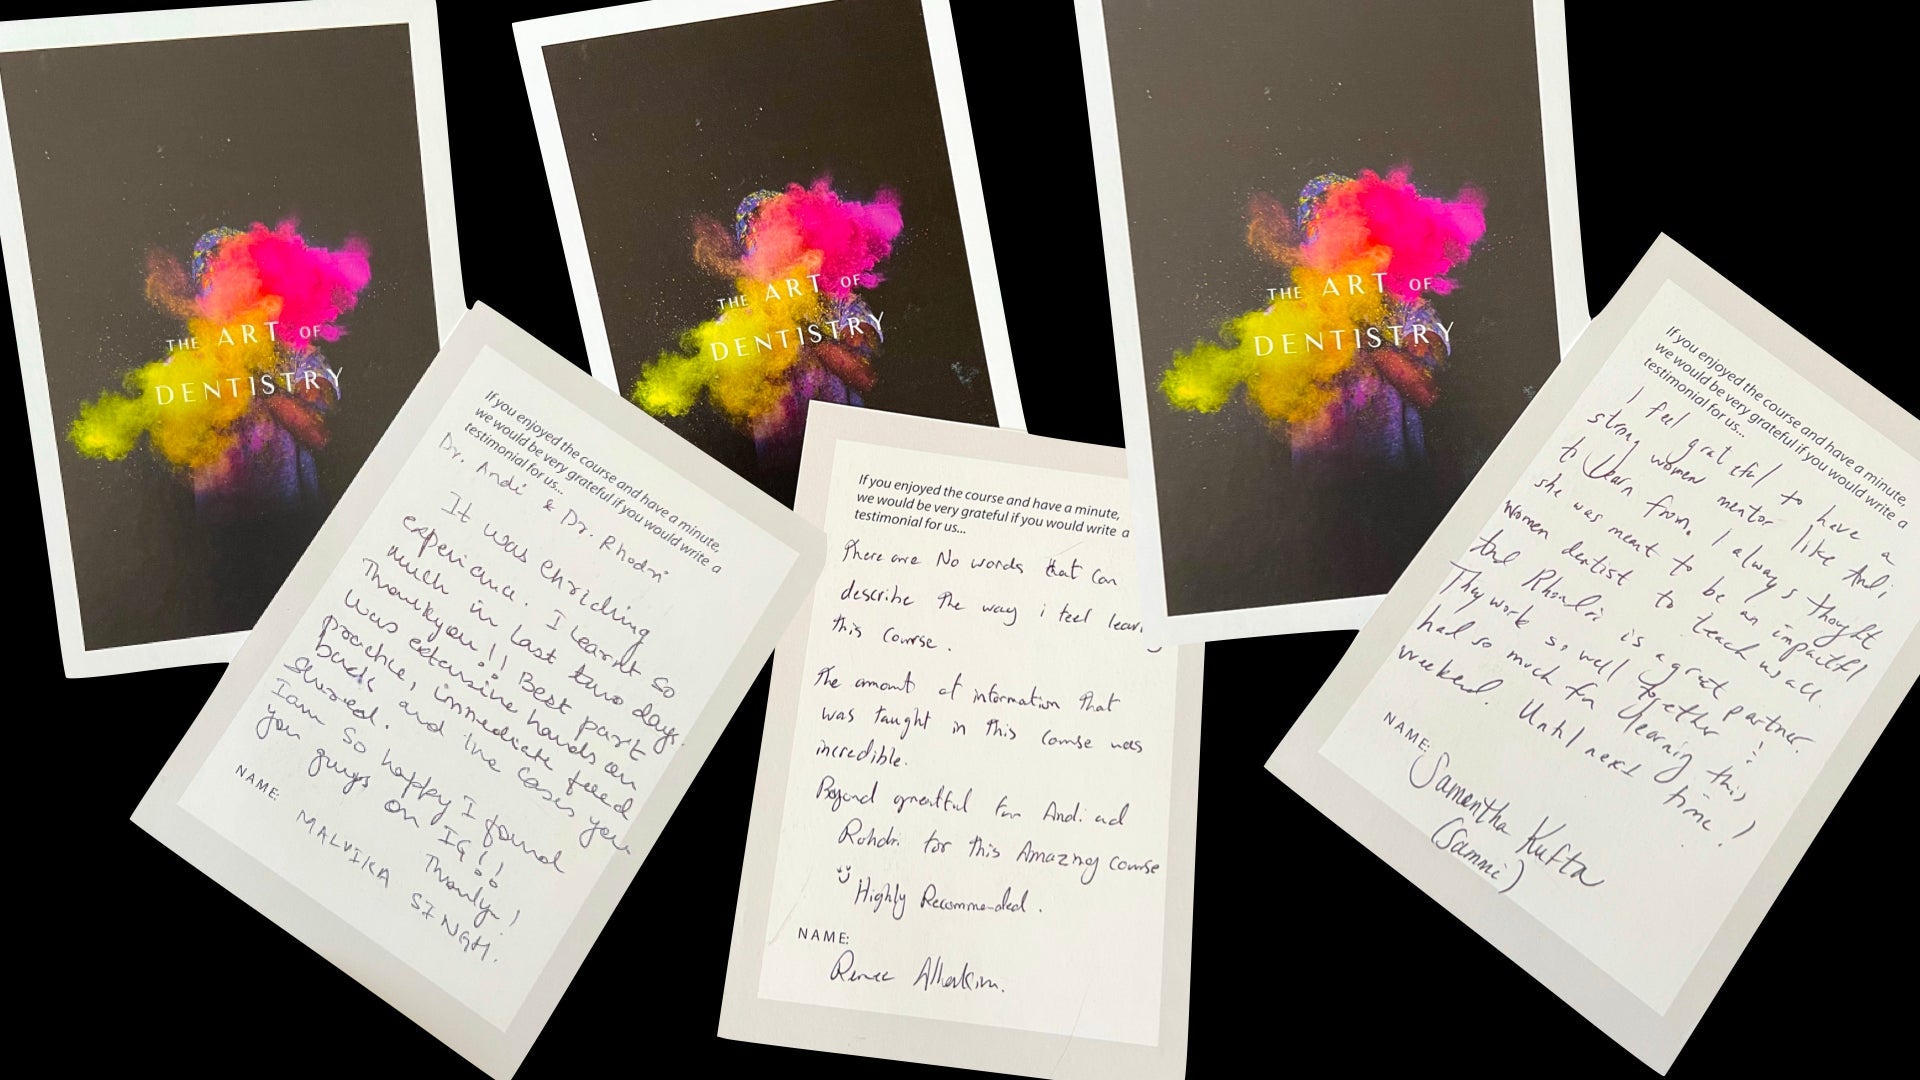 THE ART OF
DENTISTRY
THE ART OF
DENTISTRY
THE ART OF
DENTISTRY
If you enjoyed the course and have a minute,
we would be very grateful if you would write a
testimonial for us...
Dr. Andi & Dr. Rhodri
It was enriching
experience. I learnt so
much in last two days.
Thankyou!! Best part
was extensive hands on
practice, immediate feed
back and live cases you
showed.
I am so happy I found
you guys on IG!!
Thankyou!
NAME:
MALVIKA SINGH.
If you enjoyed the course and have a minute,
we would be very grateful if you would write a
testimonial for us...
There are No words that can
describe the way i feel
this course.
The amount of information that
was taught in this course was
incredible.
Beyond greatful for Andi ad
Rohdri for this Amazing course
Highly Recommended.
NAME:
Renee Alhakim.
If you enjoyed the course and have a minute,
we would be very grateful if you would write a
testimonial for us...
I feel grateful to have a
strong women mentor like Andi
to learn from. I always thought
she was meant to be an impactful
women dentist to teach us all.
And Rhodri is a great partner.
They work so well together!
had so much fun learning this
weekend. Until next time!
NAME:
Samantha Kufta
(Sammi)